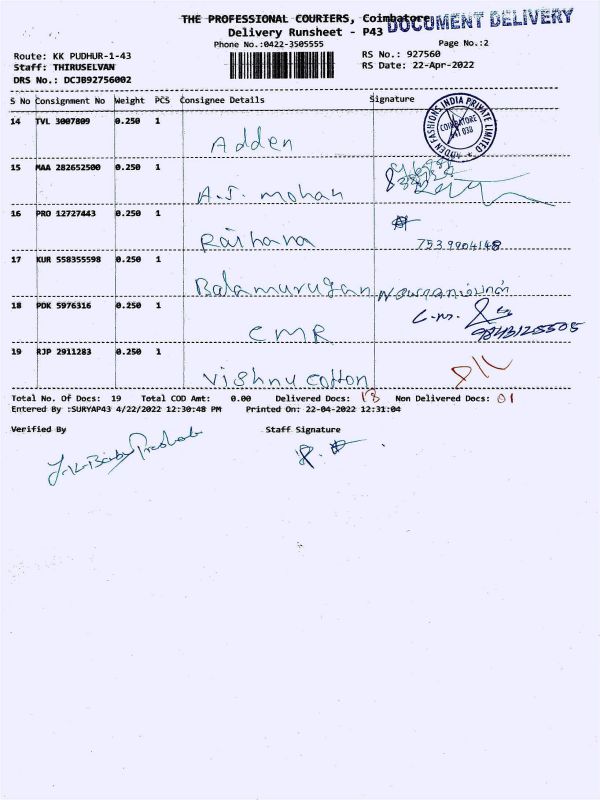 THE PROFESSIONAL COURIERS, Coimbatore
DOCUMENT DELIVERY
Delivery Runsheet - P43
Phone No.:0422-3505555
Page No.:2
Route: KK PUDHUR-1-43
RS No.: 927560
Staff: THIRUSELVAN
RS Date: 22-Apr-2022
DRS No.: DCJB92756002
S No Consignment No Weight PCS Consignee Details Signature
14 TVL 3007809 0.250 1
Adden
ADDEN FASHIONS INDIA PRIVATE LIMITED
COIMBATORE
641 038
15 MAA 282652500 0.250 1
A.J. mohan
16 PRO 12727443 0.250 1
Raihana
7539904148
17 KUR 558355598 0.250 1
Balamurugan
18 PDK 5976316 0.250 1
CMR
C.M.
9843125505
19 RJP 2911283 0.250 1
Vishnu cotton
Total No. Of Docs: 19 Total COD Amt: 0.00 Delivered Docs: 18 Non Delivered Docs: 01
Entered By :SURYAP43 4/22/2022 12:30:48 PM Printed On: 22-04-2022 12:31:04
Verified By Staff Signature